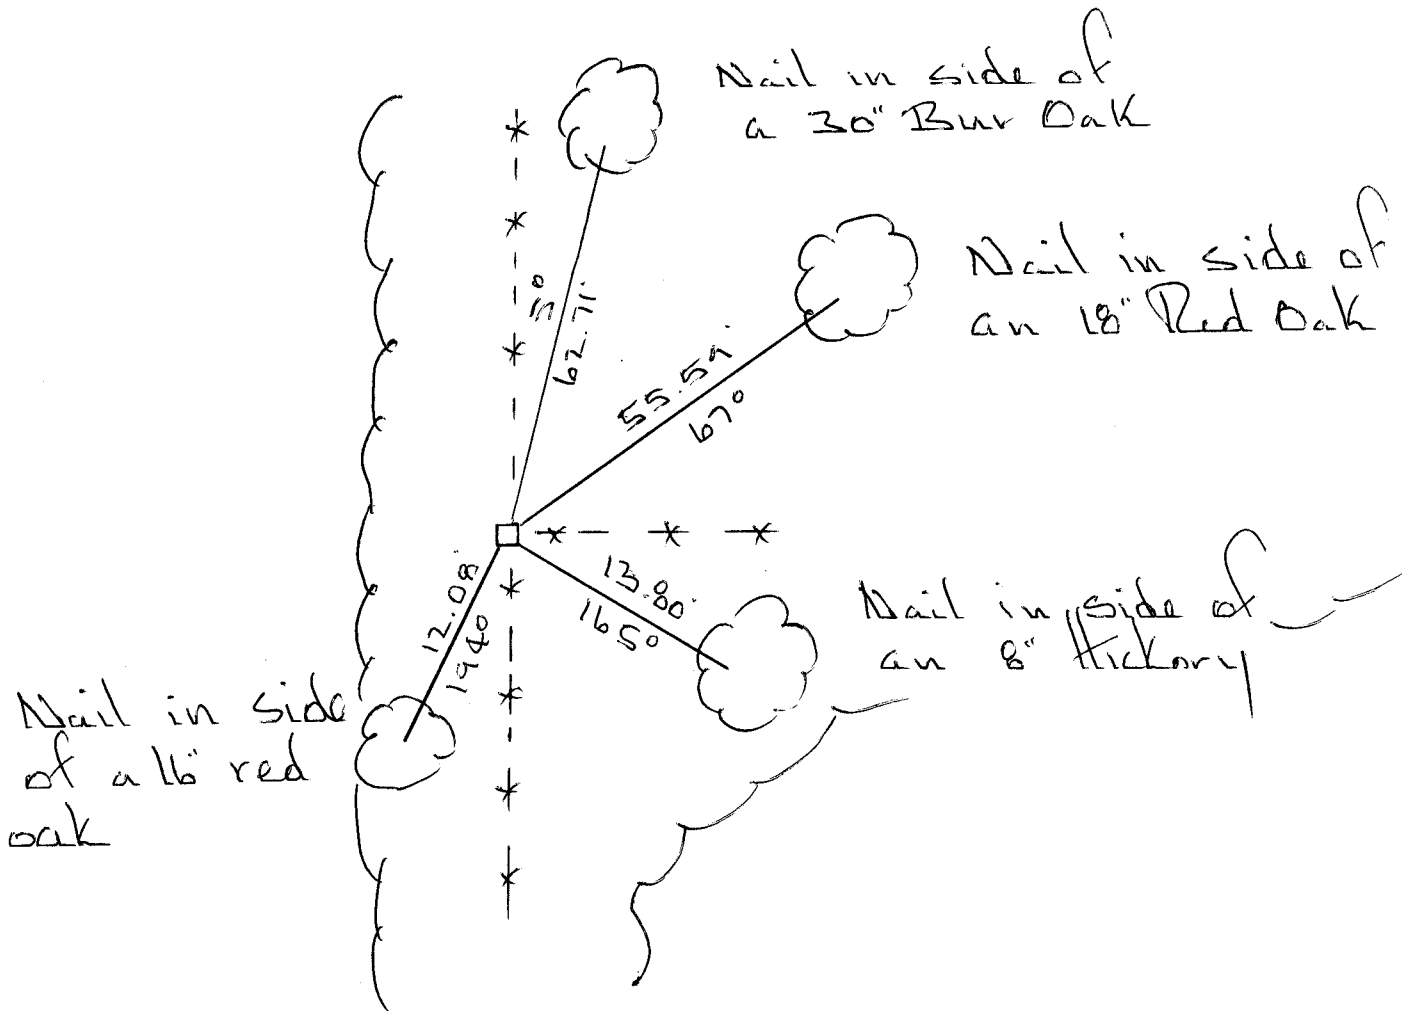 Nail in side of
a 30" Bur Oak
Nail in side of
an 18" Red Oak
5°
62.71'
55.59'
67°
13.80'
165°
Nail in side of
an 8" Hickory
12.08'
194°
Nail in side
of a 16" red
oak